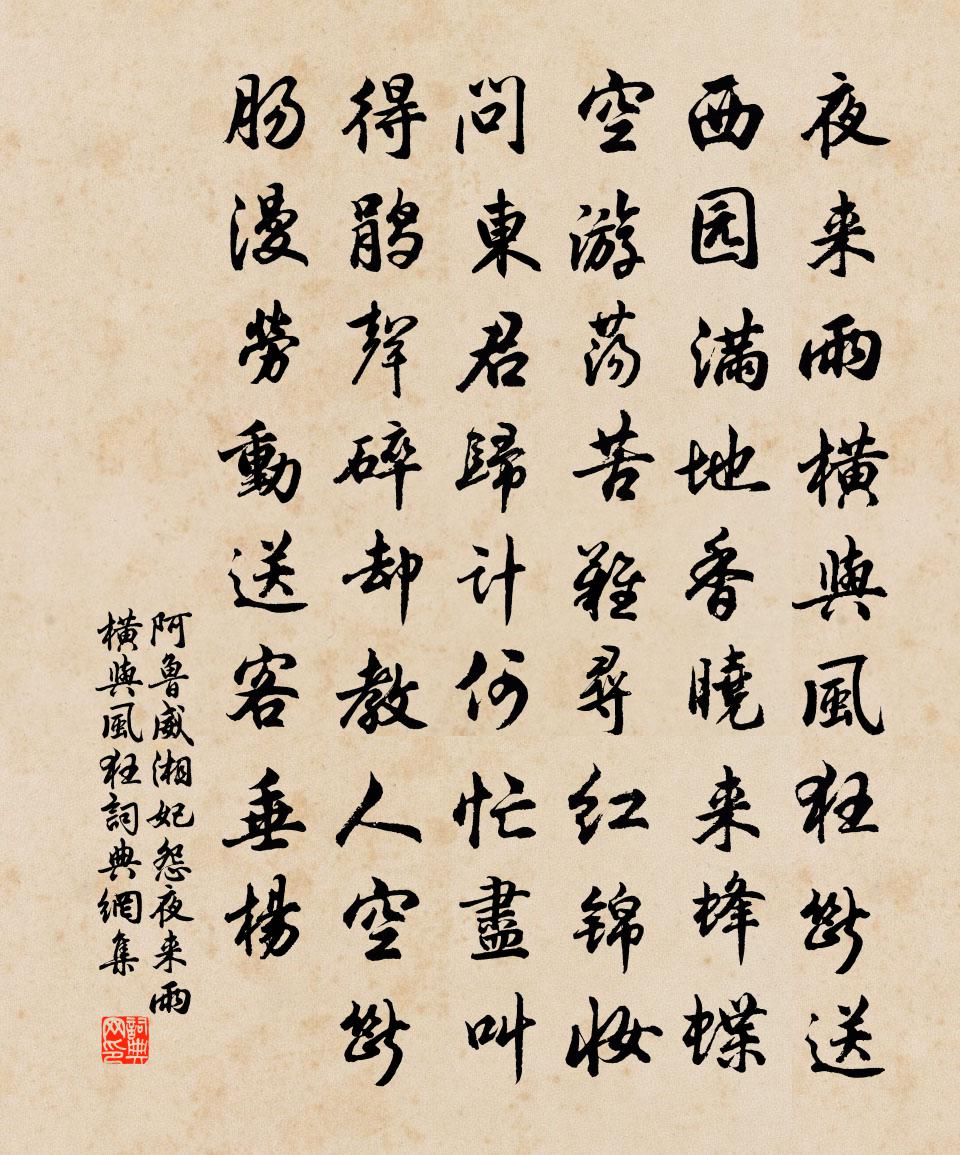 夜来雨横與風狂斷送
西园满地香曉来蜂蝶
空游蕩苦難尋红锦妝
問東君歸計何忙盡叫
得鹃聲碎却教人空斷
肠漫勞動送客垂楊
阿鲁威湘妃怨夜来雨
横與風狂詞典網集
詞典
网印